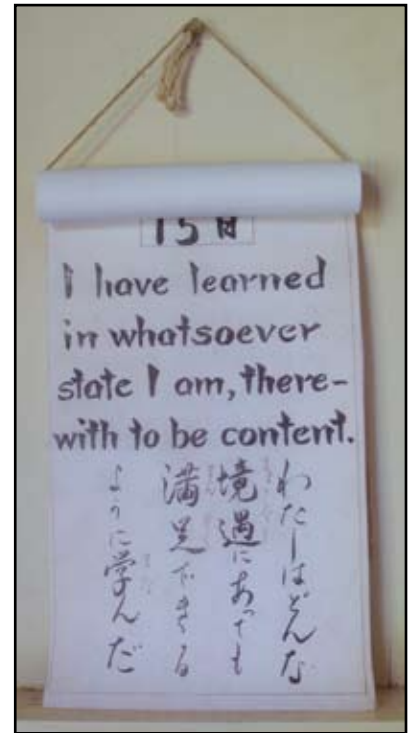 15日
I have learned
in whatsoever
state I am, there-
with to be content.
わたしはどんな
境遇にあっても
満足できる
ように学んだ